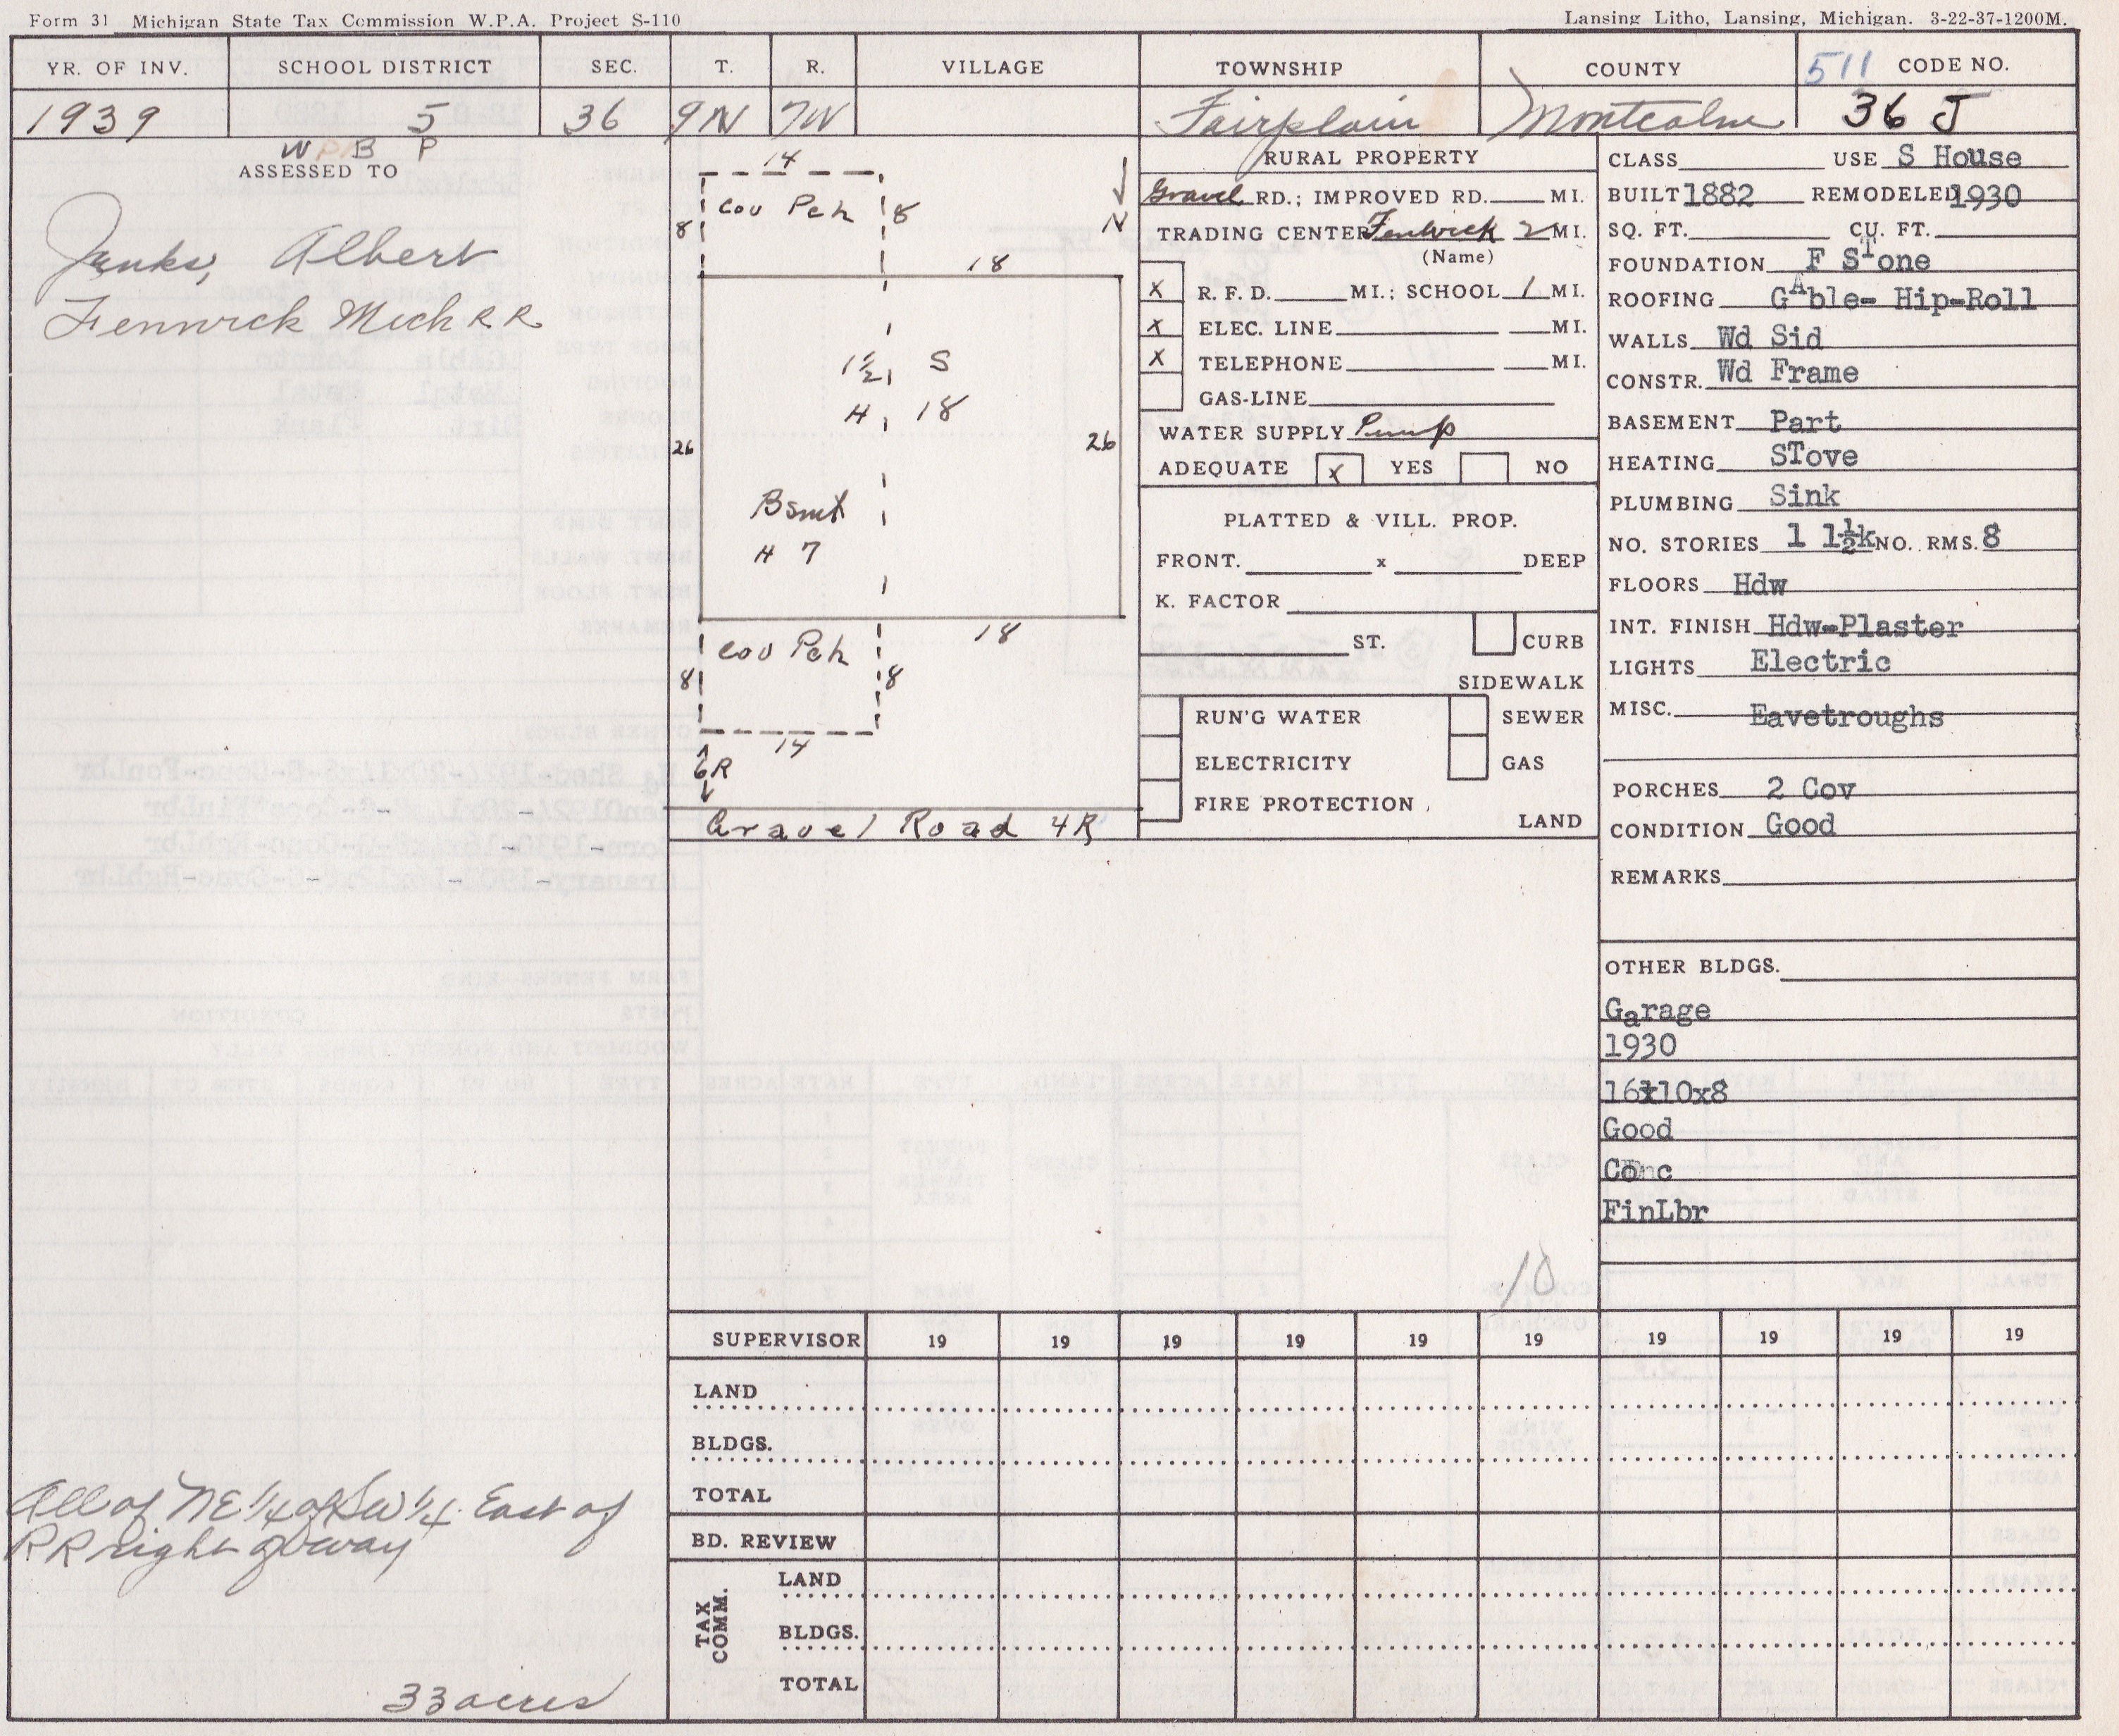 Form 31 Michigan State Tax Commission W.P.A. Project S-110
Lansing Litho, Lansing, Michigan. 3-22-37-1200M.
YR. OF INV. SCHOOL DISTRICT SEC. T. R. VILLAGE TOWNSHIP COUNTY 511 CODE NO.
1939 5 36 9N 7W Fairplain Montcalm 36 J
W B P
ASSESSED TO
Janks, Albert
Fenwick Mich R R
14
Cov Pch
8
8
N
18
1½ S
H 18
26
26
Bsmt
H 7
18
Cov Pch
8
8
14
6R
Gravel Road 4R
RURAL PROPERTY
Gravel RD.; IMPROVED RD. MI.
TRADING CENTER Fenwick 2 MI.
(Name)
X R. F. D. MI.; SCHOOL 1 MI.
X ELEC. LINE MI.
X TELEPHONE MI.
GAS-LINE
WATER SUPPLY Pump
ADEQUATE X YES NO
PLATTED & VILL. PROP.
FRONT. x DEEP
K. FACTOR
ST. CURB
SIDEWALK
RUN'G WATER SEWER
ELECTRICITY GAS
FIRE PROTECTION
LAND
CLASS USE S House
BUILT 1882 REMODELED 1930
SQ. FT. CU. FT.
FOUNDATION F STone
ROOFING GAble- Hip-Roll
WALLS Wd Sid
CONSTR. Wd Frame
BASEMENT Part
HEATING STove
PLUMBING Sink
NO. STORIES 1 1½ NO. RMS. 8
FLOORS Hdw
INT. FINISH Hdw-Plaster
LIGHTS Electric
MISC. Eavetroughs
PORCHES 2 Cov
CONDITION Good
REMARKS
OTHER BLDGS.
Garage
1930
16x10x8
Good
Conc
FinLbr
10
SUPERVISOR 19 19 19 19 19 19 19 19 19 19
LAND
BLDGS.
TOTAL
BD. REVIEW
TAX COMM.
LAND
BLDGS.
TOTAL
All of NE 1/4 of SW 1/4 East of
RR right of way
33 acres